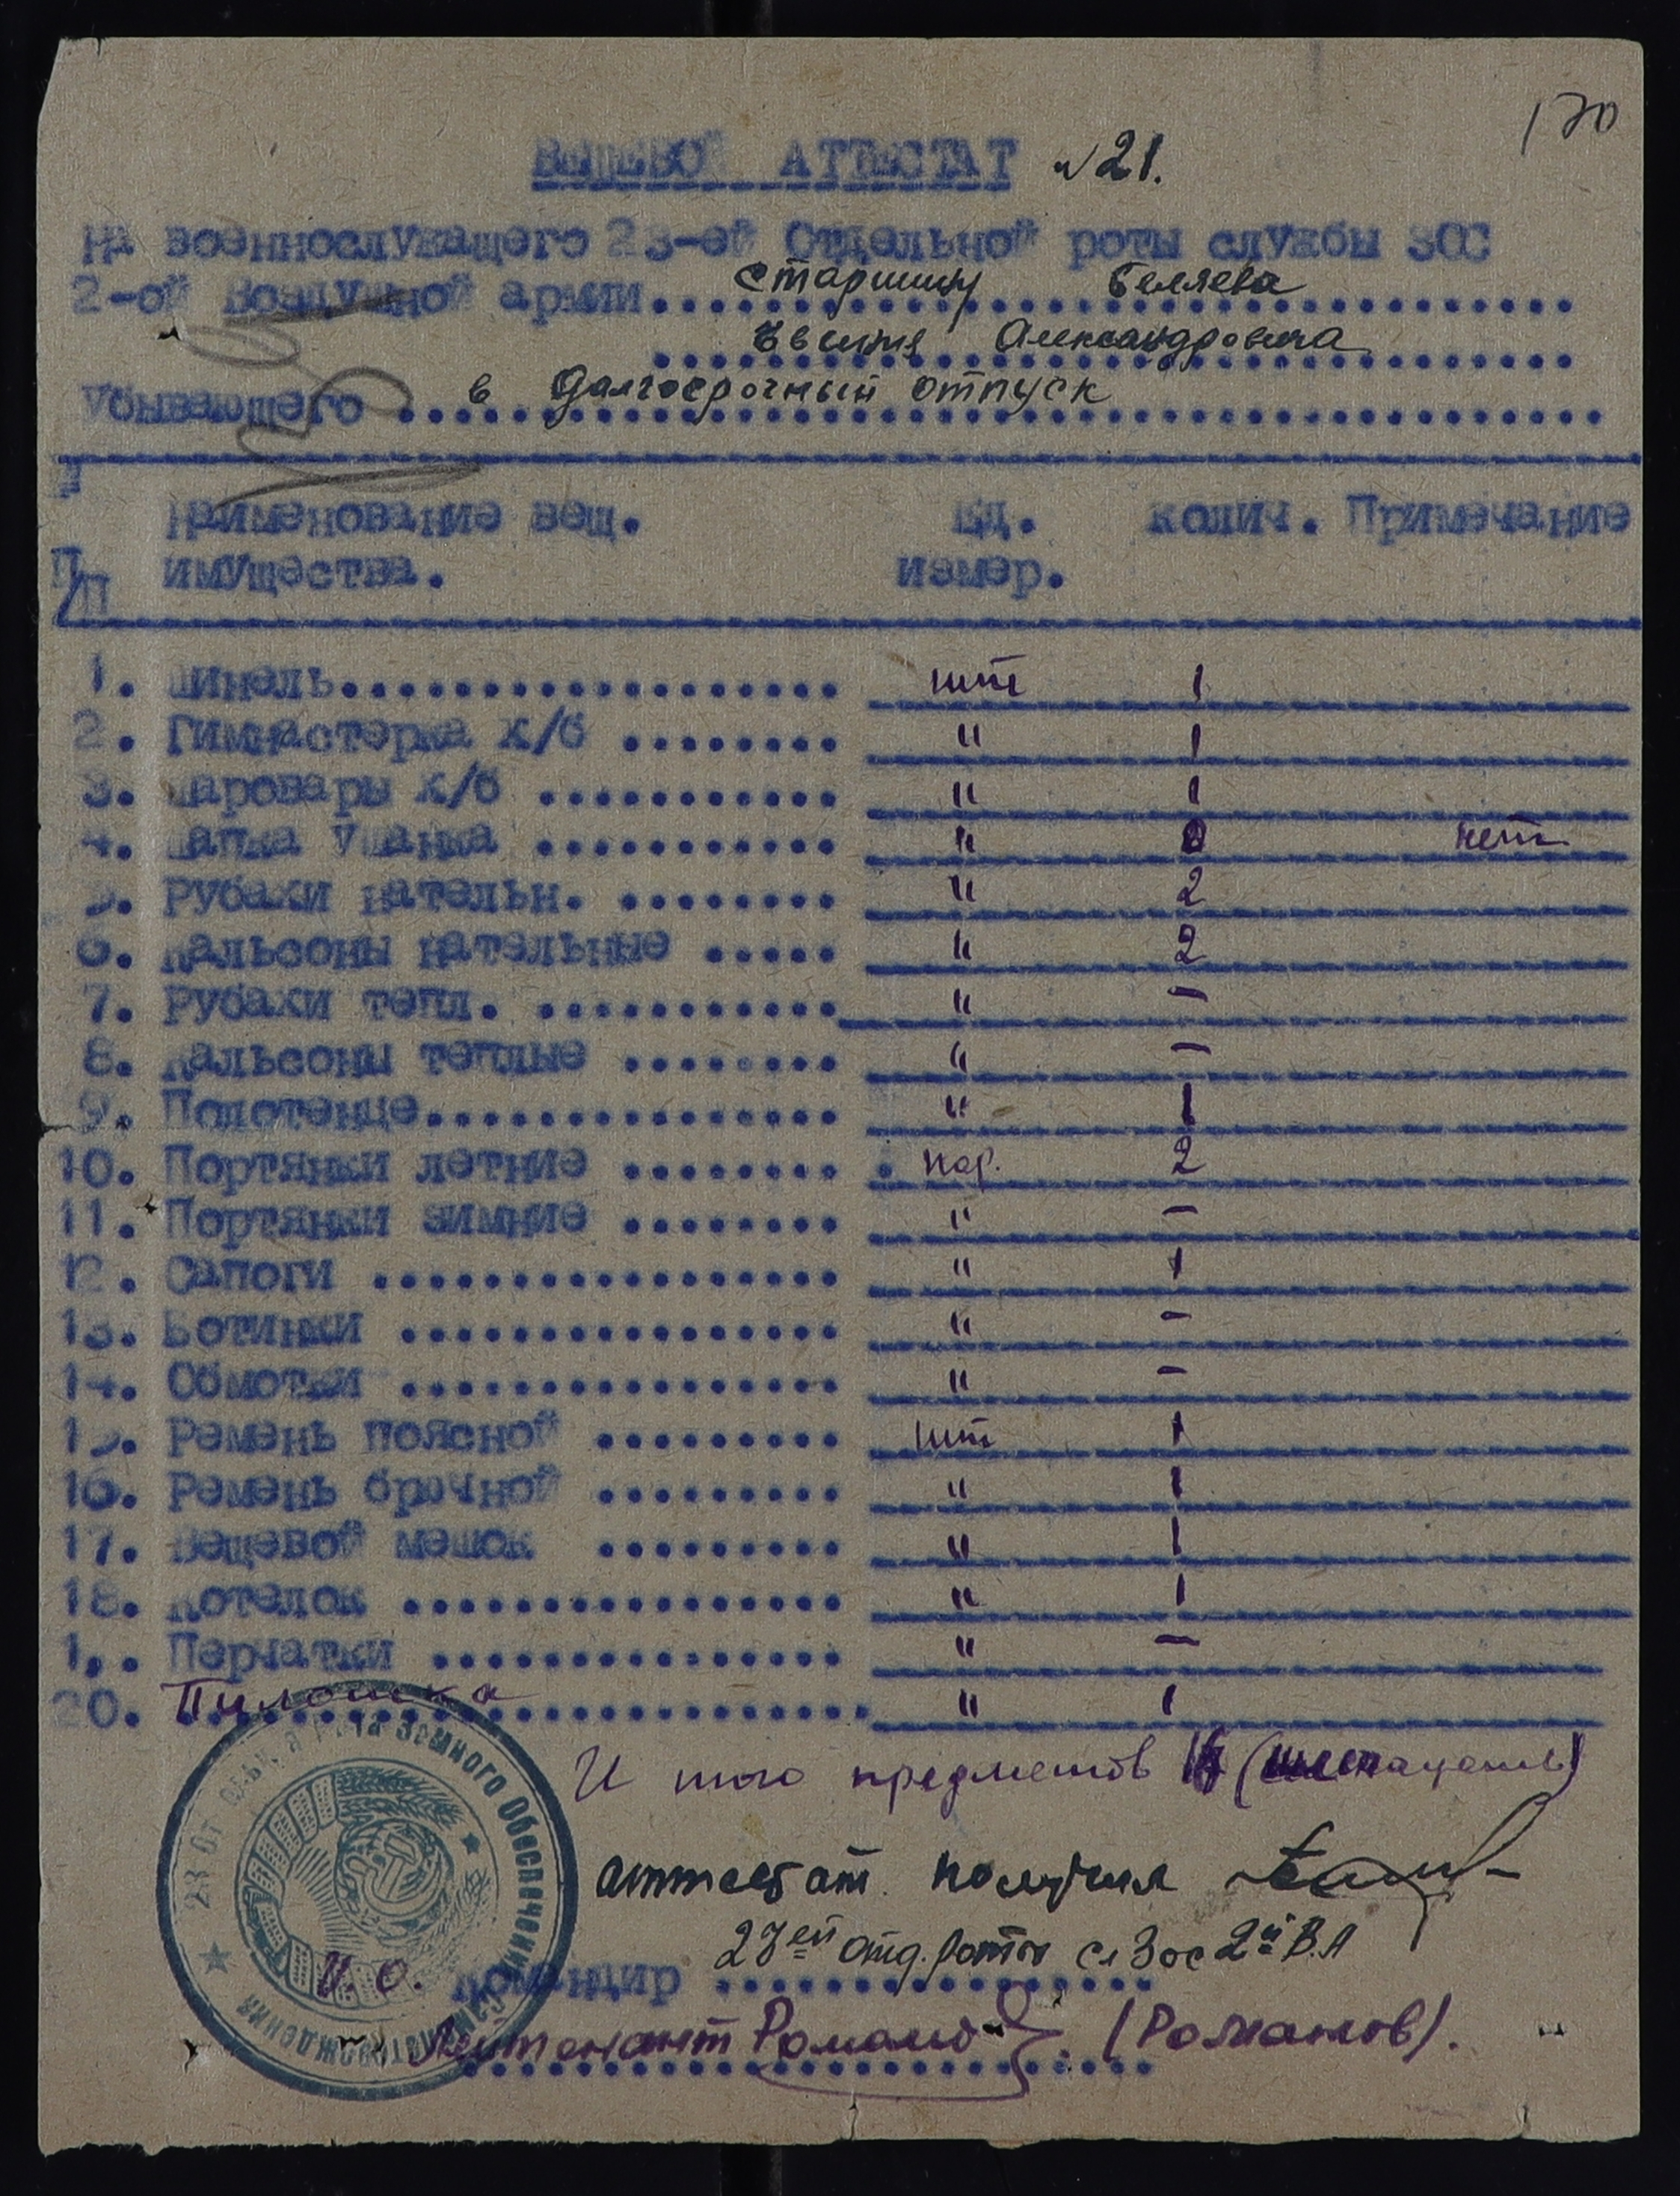 170
ВЕЩЕВОЙ АТТЕСТАТ №21.
На военнослужащего 23-ей Отдельной роты службы ЗОС
2-ой Воздушной армии старшину Беляева
Евгения Александровича
Убывающего в долгосрочный отпуск
П/П Наименование вещ. имущества. Ед. измер. Колич. Примечание
1. Шинель шт 1
2. Гимнастерка х/б " 1
3. Шаровары х/б " 1
4. Шапка Ушанка " нет
5. Рубахи нательн. " 2
6. Кальсоны нательные " 2
7. Рубахи тепл. " -
8. Кальсоны теплые " -
9. Полотенце " 1
10. Портянки летние пар. 2
11. Портянки зимние " -
12. Сапоги " 1
13. Ботинки " -
14. Обмотки " -
15. Ремень поясной шт 1
16. Ремень брючной " 1
17. Вещевой мешок " 1
18. Котелок " 1
19. Перчатки " -
20. Пилотка " 1
Итого предметов
аттестат получил
23ей отд. роты сл Зос 2й В.А
И.О. Командир
Лейтенант Романов (Романов).
23 От рота Земного Обеспечения